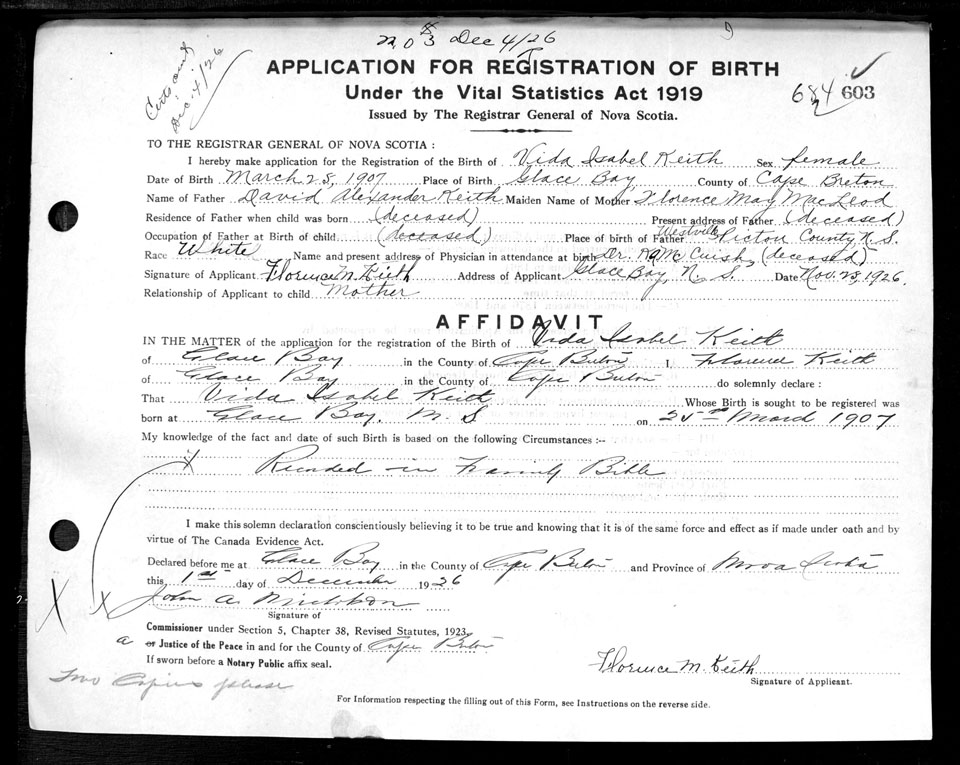 Dec 4/26
Dec 4/26
APPLICATION FOR REGISTRATION OF BIRTH
Under the Vital Statistics Act 1919
684 603
Issued by The Registrar General of Nova Scotia.
TO THE REGISTRAR GENERAL OF NOVA SCOTIA :
I hereby make application for the Registration of the Birth of Vida Isabel Keith Sex female
Date of Birth March 28, 1907 Place of Birth Glace Bay, County of Cape Breton
Name of Father David Alexander Keith Maiden Name of Mother Florence May MacLeod
Residence of Father when child was born (deceased) Present address of Father (deceased)
Occupation of Father at Birth of child (deceased) Place of birth of Father Westville Pictou County N. S.
Race White Name and present address of Physician in attendance at birth Dr. McCuish, (deceased)
Signature of Applicant Florence M. Keith Address of Applicant Glace Bay, N. S. Date Nov. 28, 1926.
Relationship of Applicant to child Mother
AFFIDAVIT
IN THE MATTER of the application for the registration of Birth of Vida Isabel Keith
of Glace Bay in the County of Cape Breton I, Florence Keith
of Glace Bay in the County of Cape Breton do solemnly declare :
That Vida Isabel Keith Whose Birth is sought to be registered was
born at Glace Bay. N S on March 1907
My knowledge of the fact and date of such Birth is based on the following Circumstances :--
x Recorded in Family Bible
I make this solemn declaration conscientiously believing it to be true and knowing that it is of the same force and effect as if made under oath and by
virtue of The Canada Evidence Act.
Declared before me at Glace Bay in the County of Cape Breton and Province of Nova Scotia
this, 1st day of December 1926
X x John A.
Signature of
Commissioner under Section 5, Chapter 38, Revised Statutes, 1923,
a or Justice of the Peace in and for the County of Cape Breton
If sworn before a Notary Public affix seal.
Florence M. Keith
Two Copies please
Signature of Applicant.
For Information respecting the filling out of this Form, see Instructions on the reverse side.